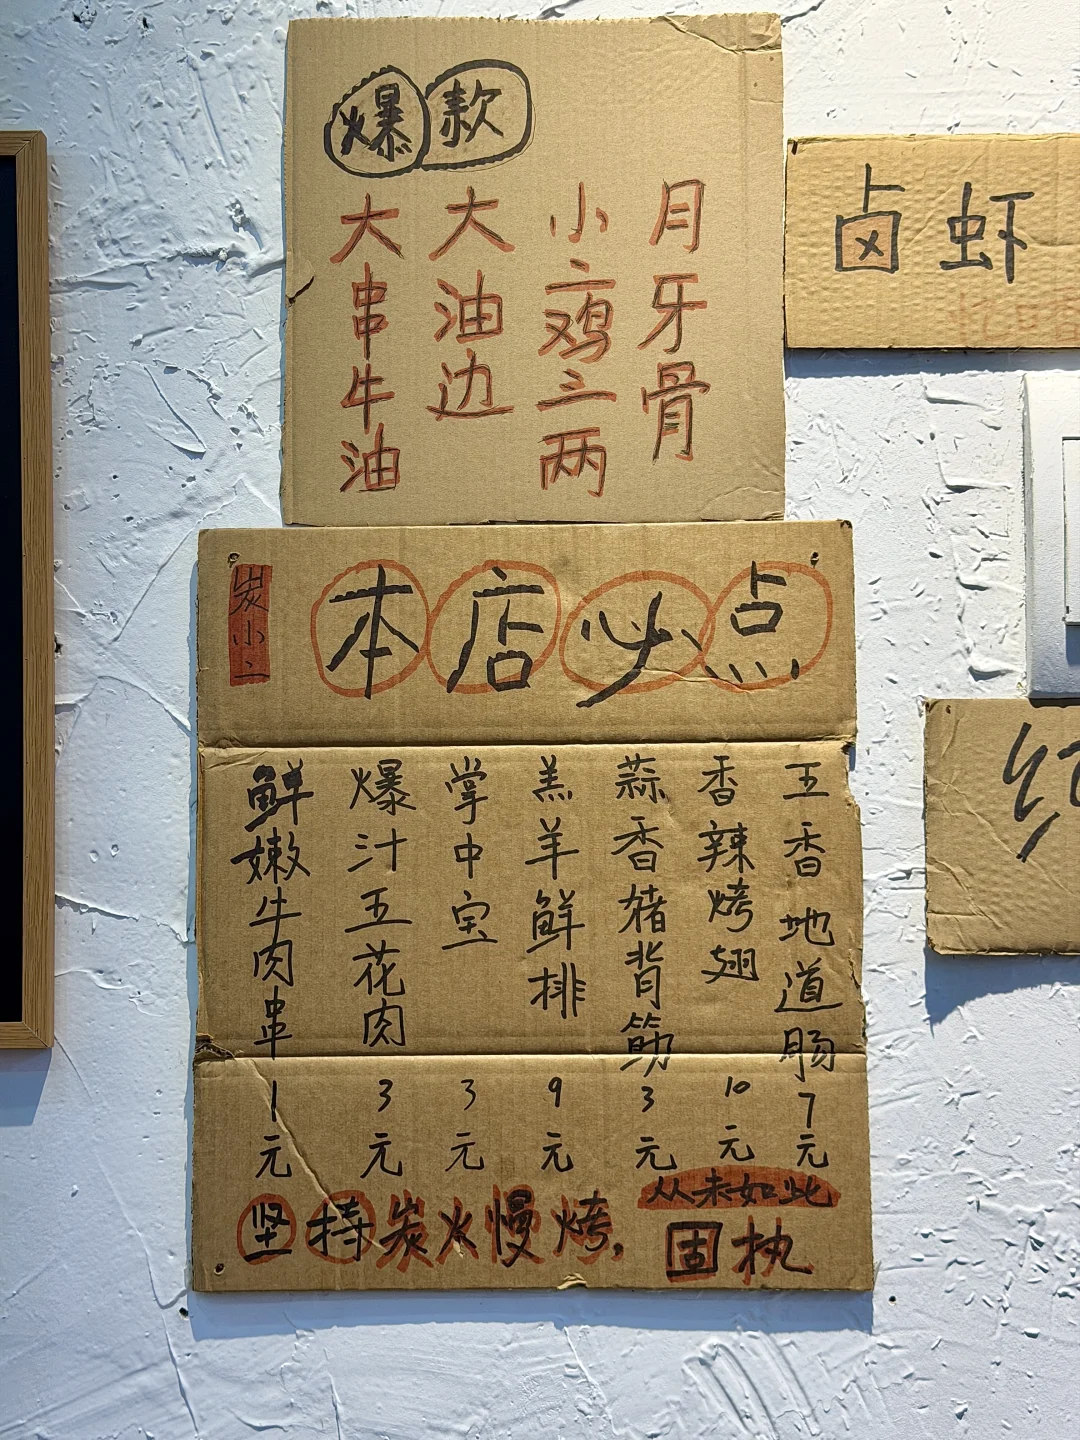 爆款
大串牛油
大油边
小二鸡三两
月牙骨
卤虾
炭小二
本店必点
鲜嫩牛肉串 1元
爆汁五花肉 3元
掌中宝 3元
羔羊鲜排 9元
蒜香猪背筋 3元
香辣烤翅 10元
五香地道肠 7元
从未如此
坚持炭火慢烤，固执